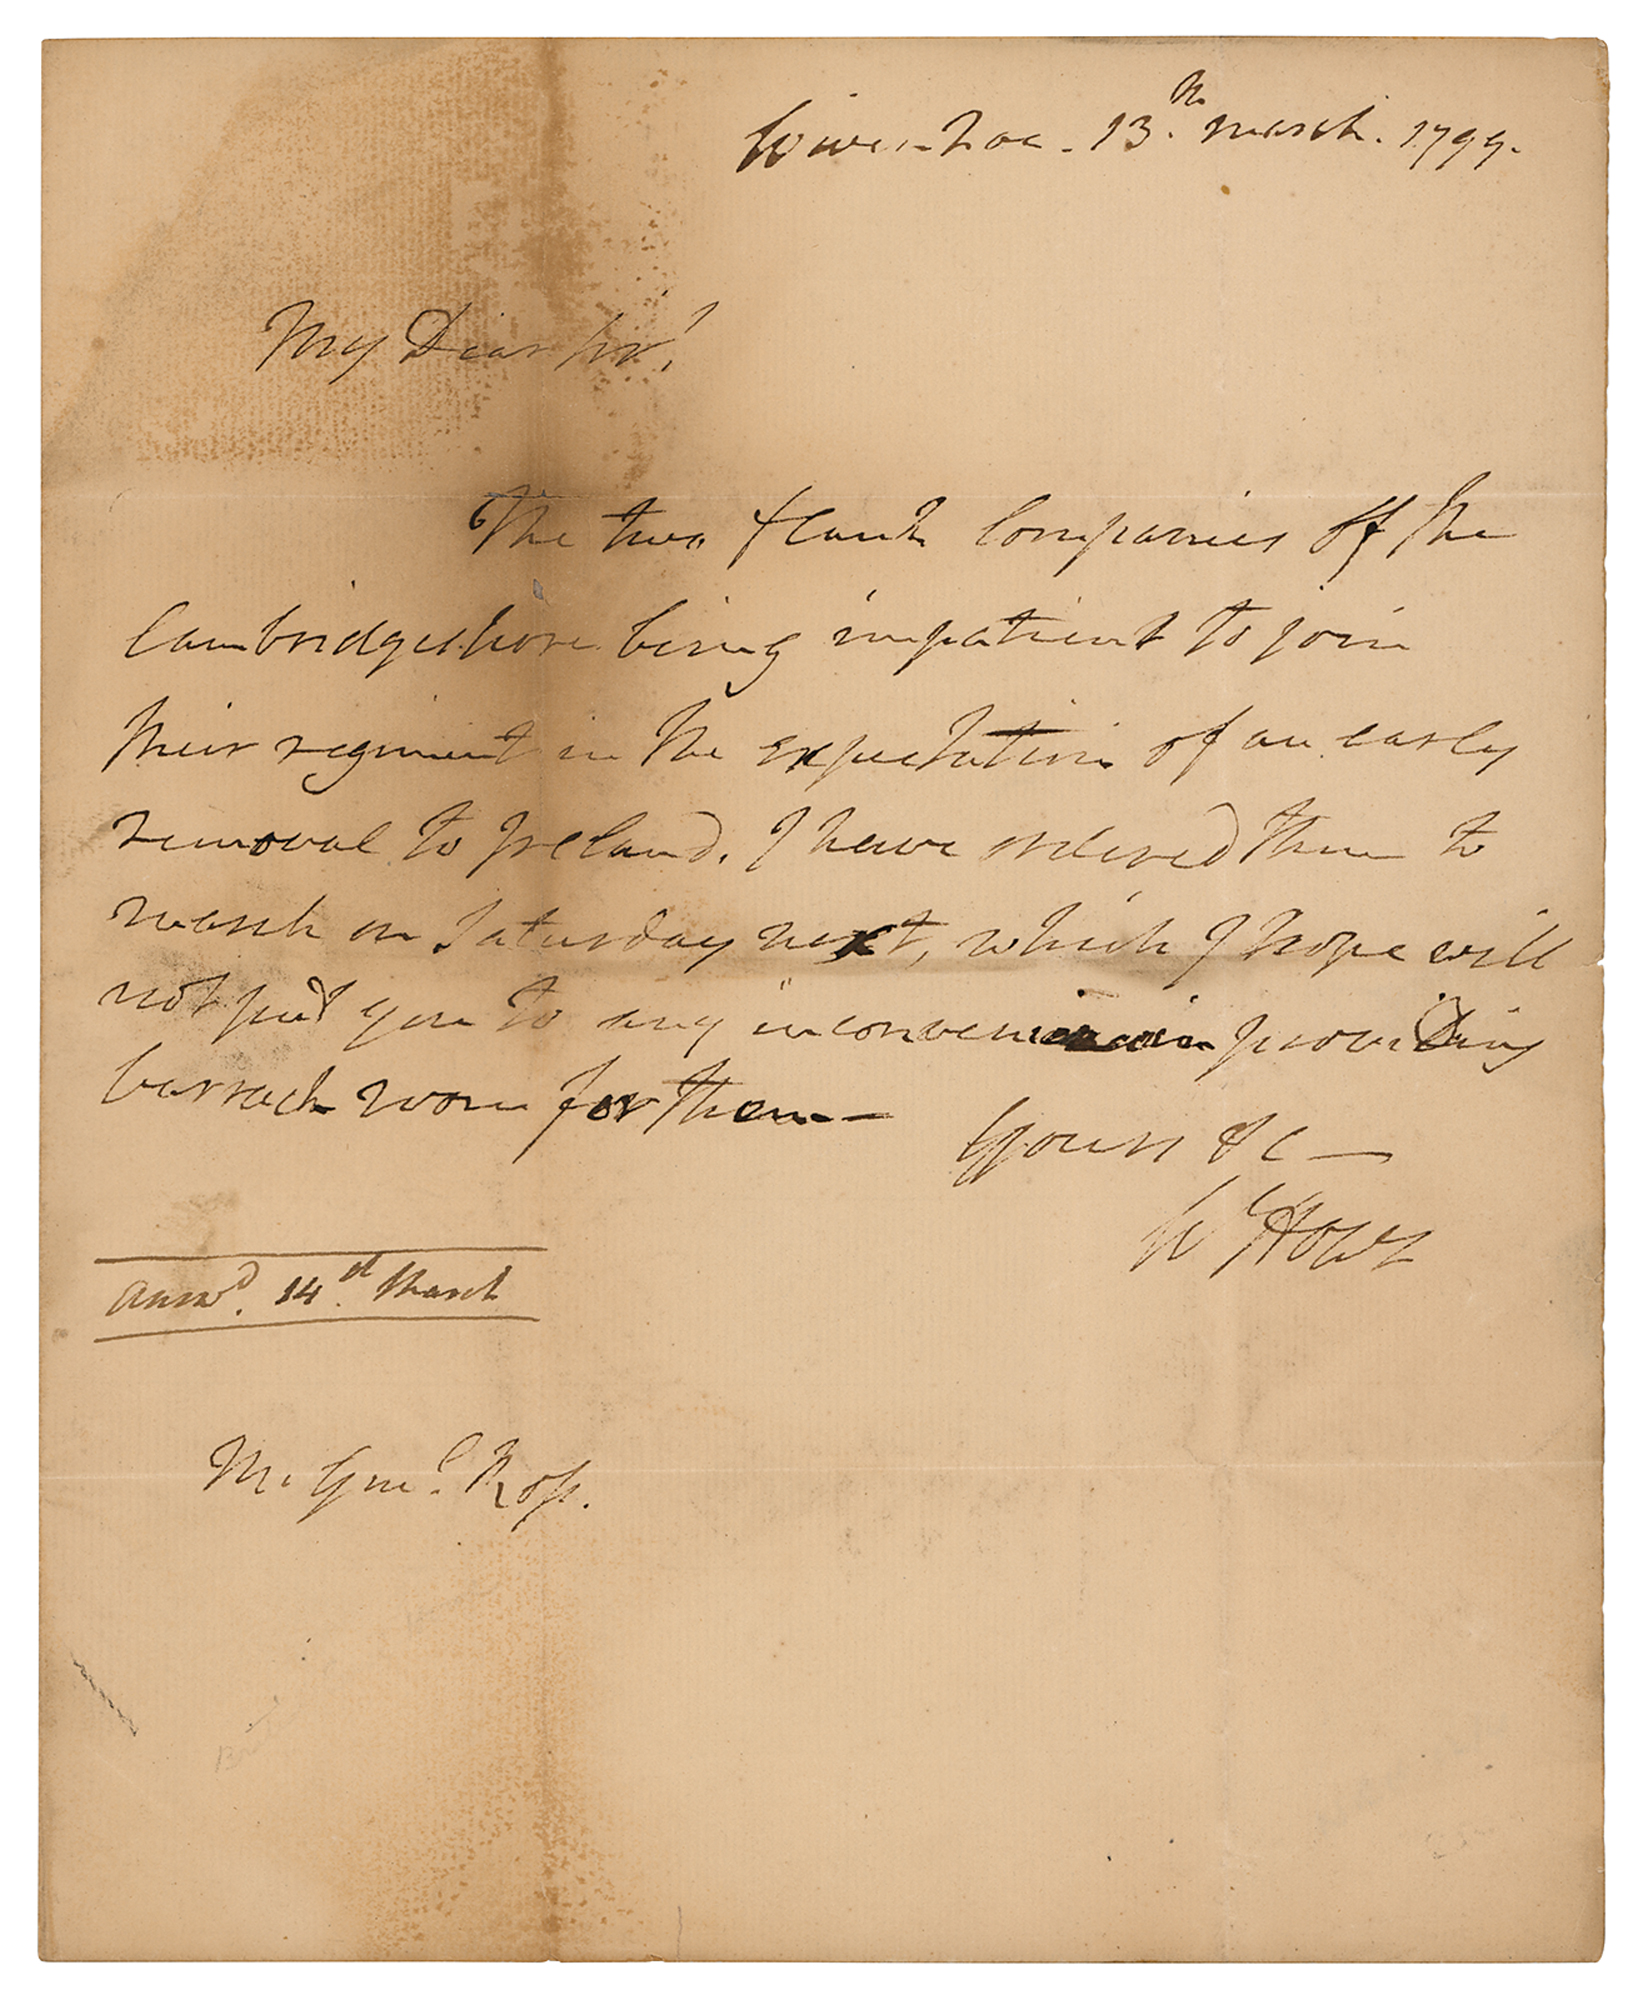 Wivenhoe. 13.th March. 1799.
My Dear Sir!
The two flank Companies off the
Cambridgeshire being impatient to join
their regiment in the expectation of an early
removal to Ireland. I have ordered them to
march on Saturday next, which I hope will
not put you to any inconvenience in providing
barrack room for them—
Yours &c—
W Howe
Answd. 14d March
M. Genl. Ross.